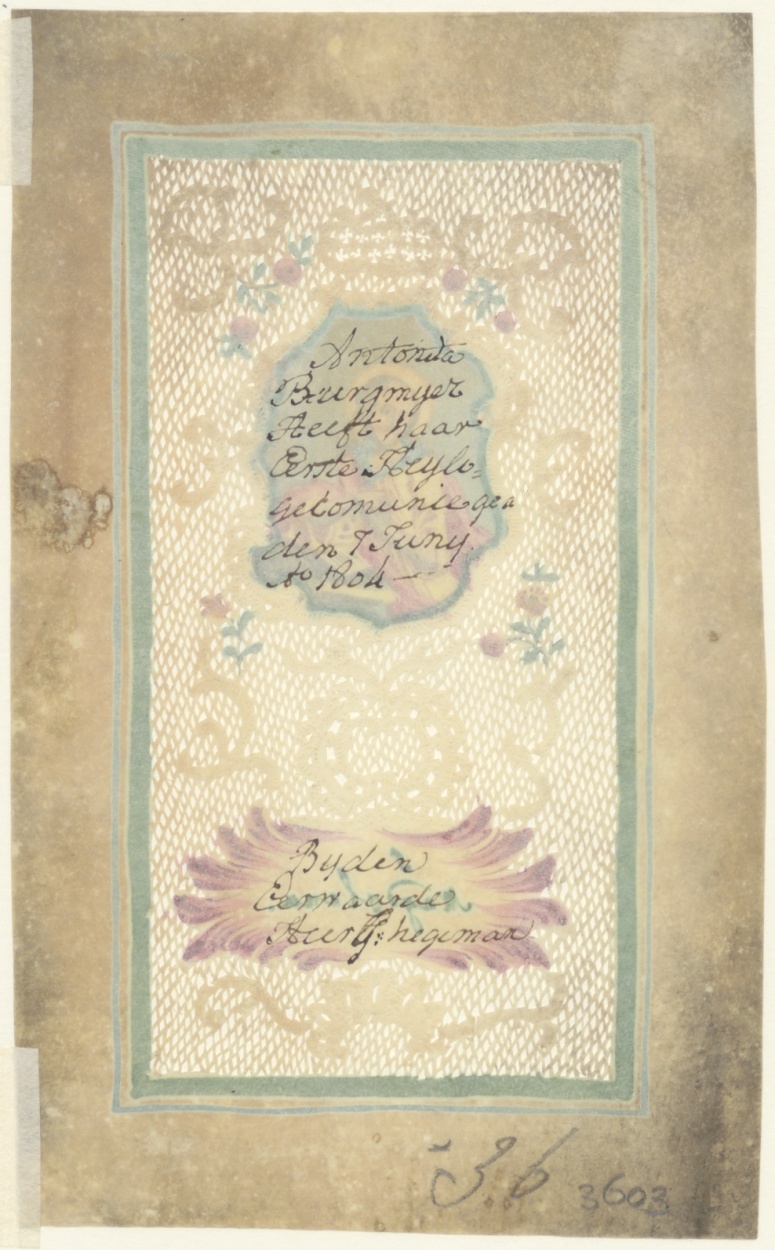 Antonita
Burgmyer
Heeft haar
Eerste Heyli=
gecomunie gea
den 7 Juny
Ao 1804 —
Byden
Eerwaarde
Heer G: hegeman
36
3603